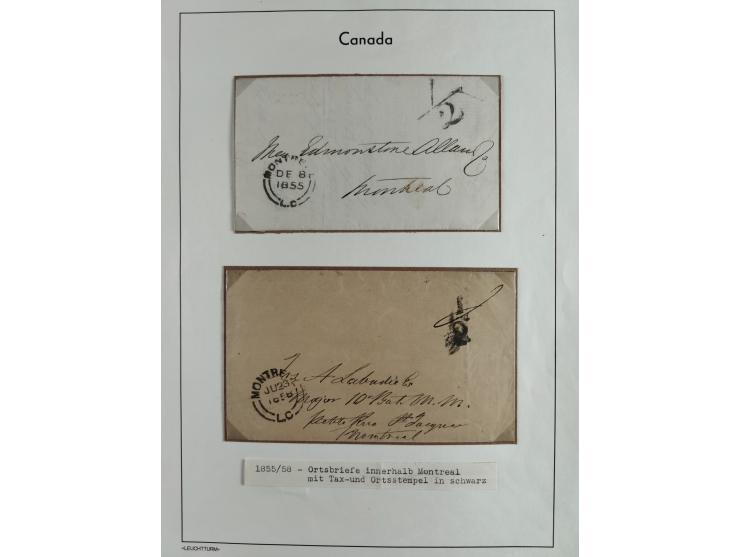 Canada
1/2
Mess Edmonstone Allan & Co
MONTREAL
DE 8
1855
L.C
Montreal
1/2
MONTRE
JU 23
1858
L.C
A Labadie
Major 10 Bat. M. M.
Petite Rue St Jacques
Montreal
1855/58 - Ortsbriefe innerhalb Montreal
mit Tax-und Ortsstempel in schwarz
-LEUCHTTURM-